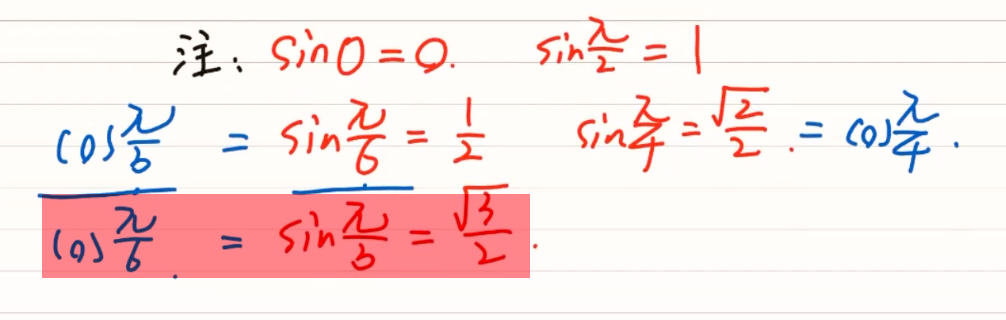 注: sin0=0. sin π/2 = 1
cos π/3 = sin π/6 = 1/2 sin π/4 = √2/2 . = cos π/4 .
cos π/6 . = sin π/3 = √3/2 .